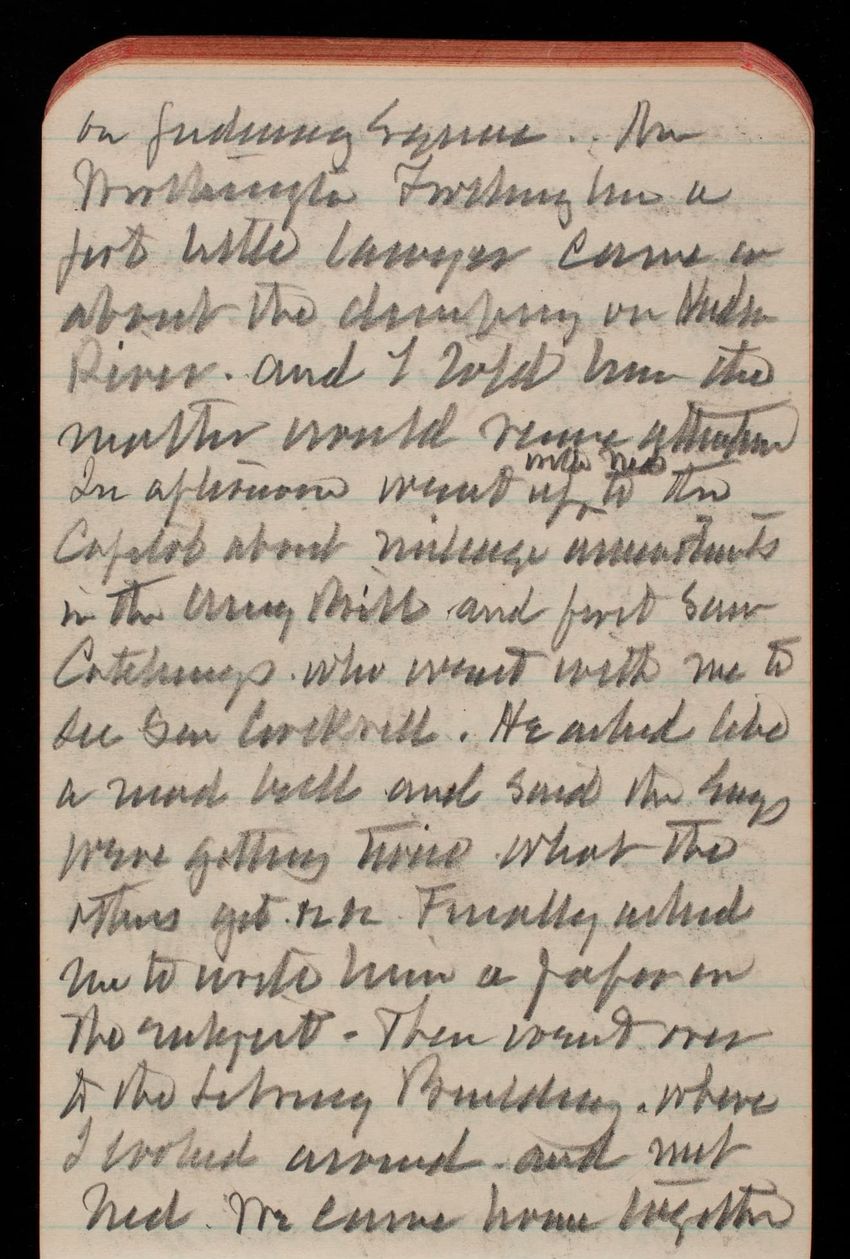 on Judiciary Square.. Mr
Worthington Frothingham a
fat little lawyer came in
about the dumping on Hudson
River. and I told him the
matter would receive attention
In afternoon went up with Ned to the
Capitol about mileage amendments
in the Army Bill and first saw
Catchings. who went with me to
see Sen Cockrell. He acted like
a mad bull and said the Engs
were getting twice what the
others get. Finally asked
me to write him a paper on
the subject - Then went over
to the Library Building. where
I looked around and met
Ned. We came home together